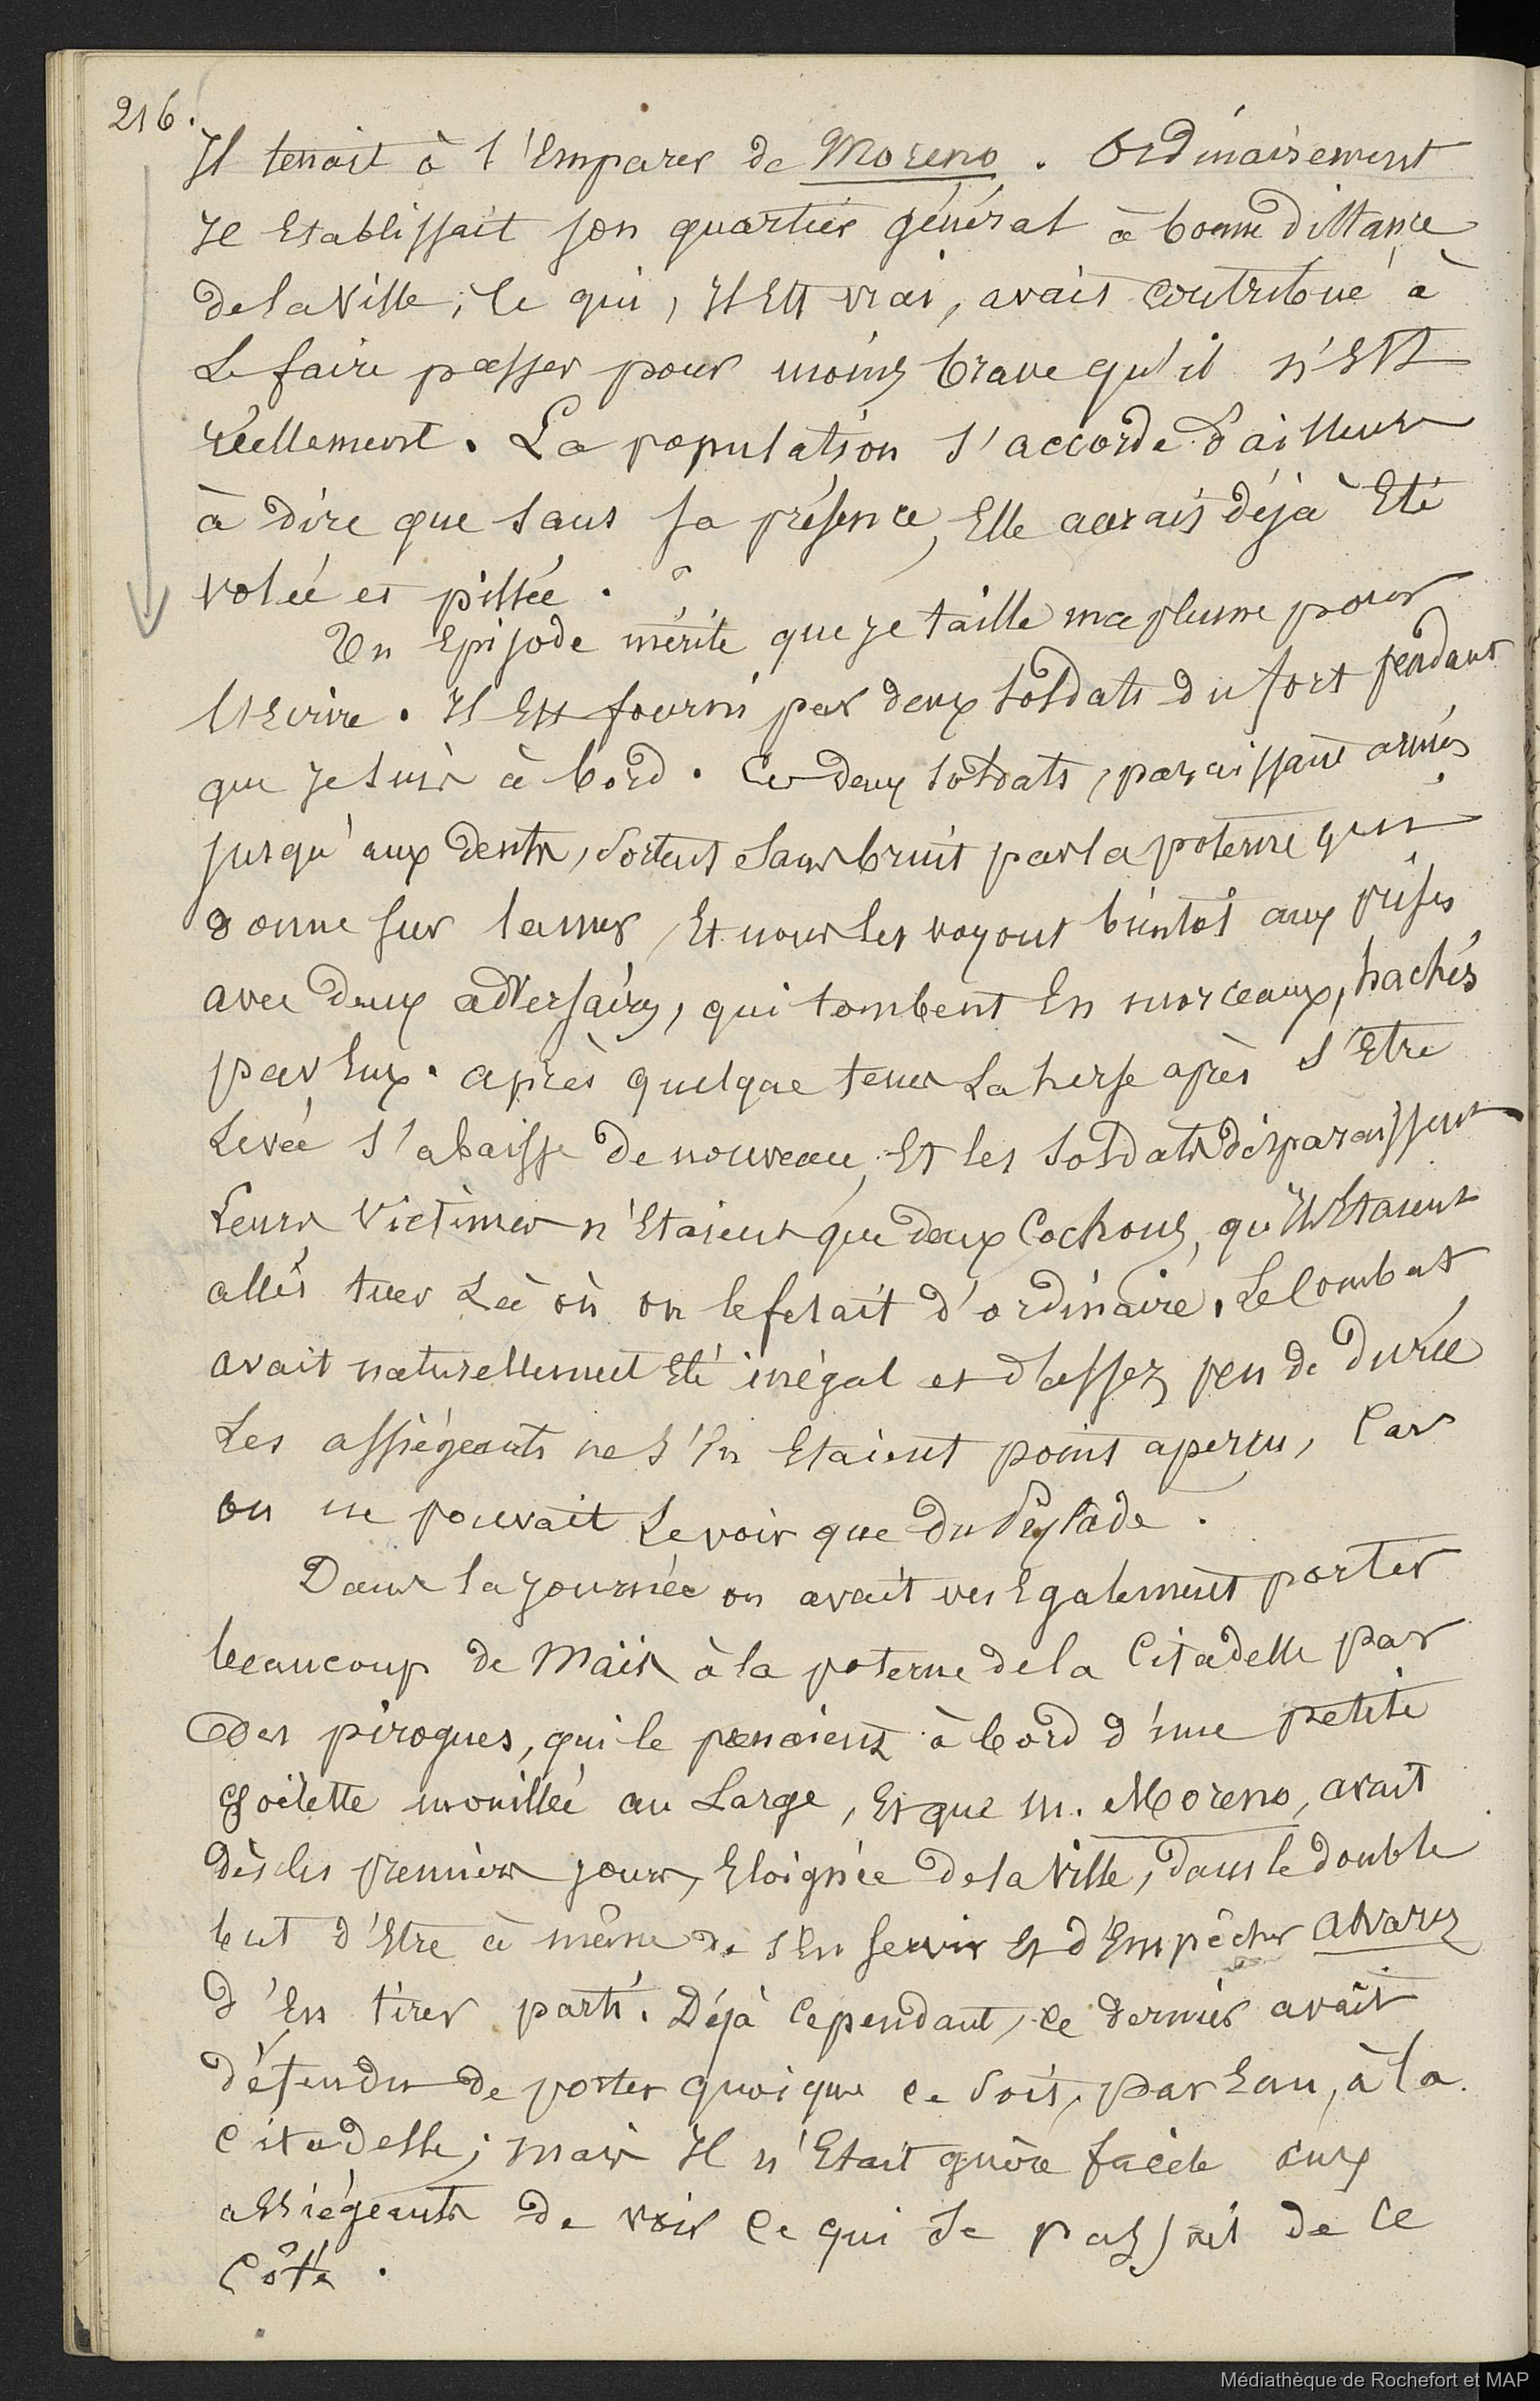 216.
Il tenait à s'Emparer de Moreno. Ordinairement
Il Etablissait son quartier général à bonne distance
de la Ville, ce qui, Il Est vrai, avait contribué à
Le faire passer pour moins brave qu'il n'Est
réellement. La population s'accorde d'ailleurs
à dire que sans sa présence, Elle aurait déjà Eté
volée et pillée.
Un Episode mérite que je taille ma plume pour
l'Ecrire. Il Est fourni par deux soldats du fort pendant
que je suis à bord. Ces deux soldats, paraissant armés
jusqu'aux dents, sortent sans bruit par la poterne qui
donne sur la mer, Et nous les voyons bientôt aux prises
avec deux adversaires, qui tombent En morceaux, hachés
par Eux. après quelque tems La herse après s'Etre
Levée s'abaisse de nouveau, Et les soldats disparaissent
Leurs Victimes n'Etaient que deux Cochons, qu'Ils Etaient
allés tuer Là où on le fesait d'ordinaire, Le Combat
avait naturellement Eté inégal et d'assez peu de durée
Les assiégeants ne s'En Etaient point aperçu, Car
on ne pouvait Le voir que du Pylade.
Dans la journée on avait vu Egalement porter
beaucoup de Maïs à la poterne de la Citadelle par
des pirogues, qui le prenaient à bord d'une petite
goëlette mouillée au Large, Et que M. Moreno, avait
dès les premiers jours, Eloignée de la Ville, dans le double
but d'Etre à même de s'En servir Et d'Empêcher Alvarez
d'En tirer parti. Déjà Cependant, ce dernier avait
défendu de porter quoique ce soit, par Eau, à la
Citadelle; mais Il n'Etait guère facile aux
assiégeants de voir Ce qui se passait de Ce
Côté.
Médiathèque de Rochefort et MAP